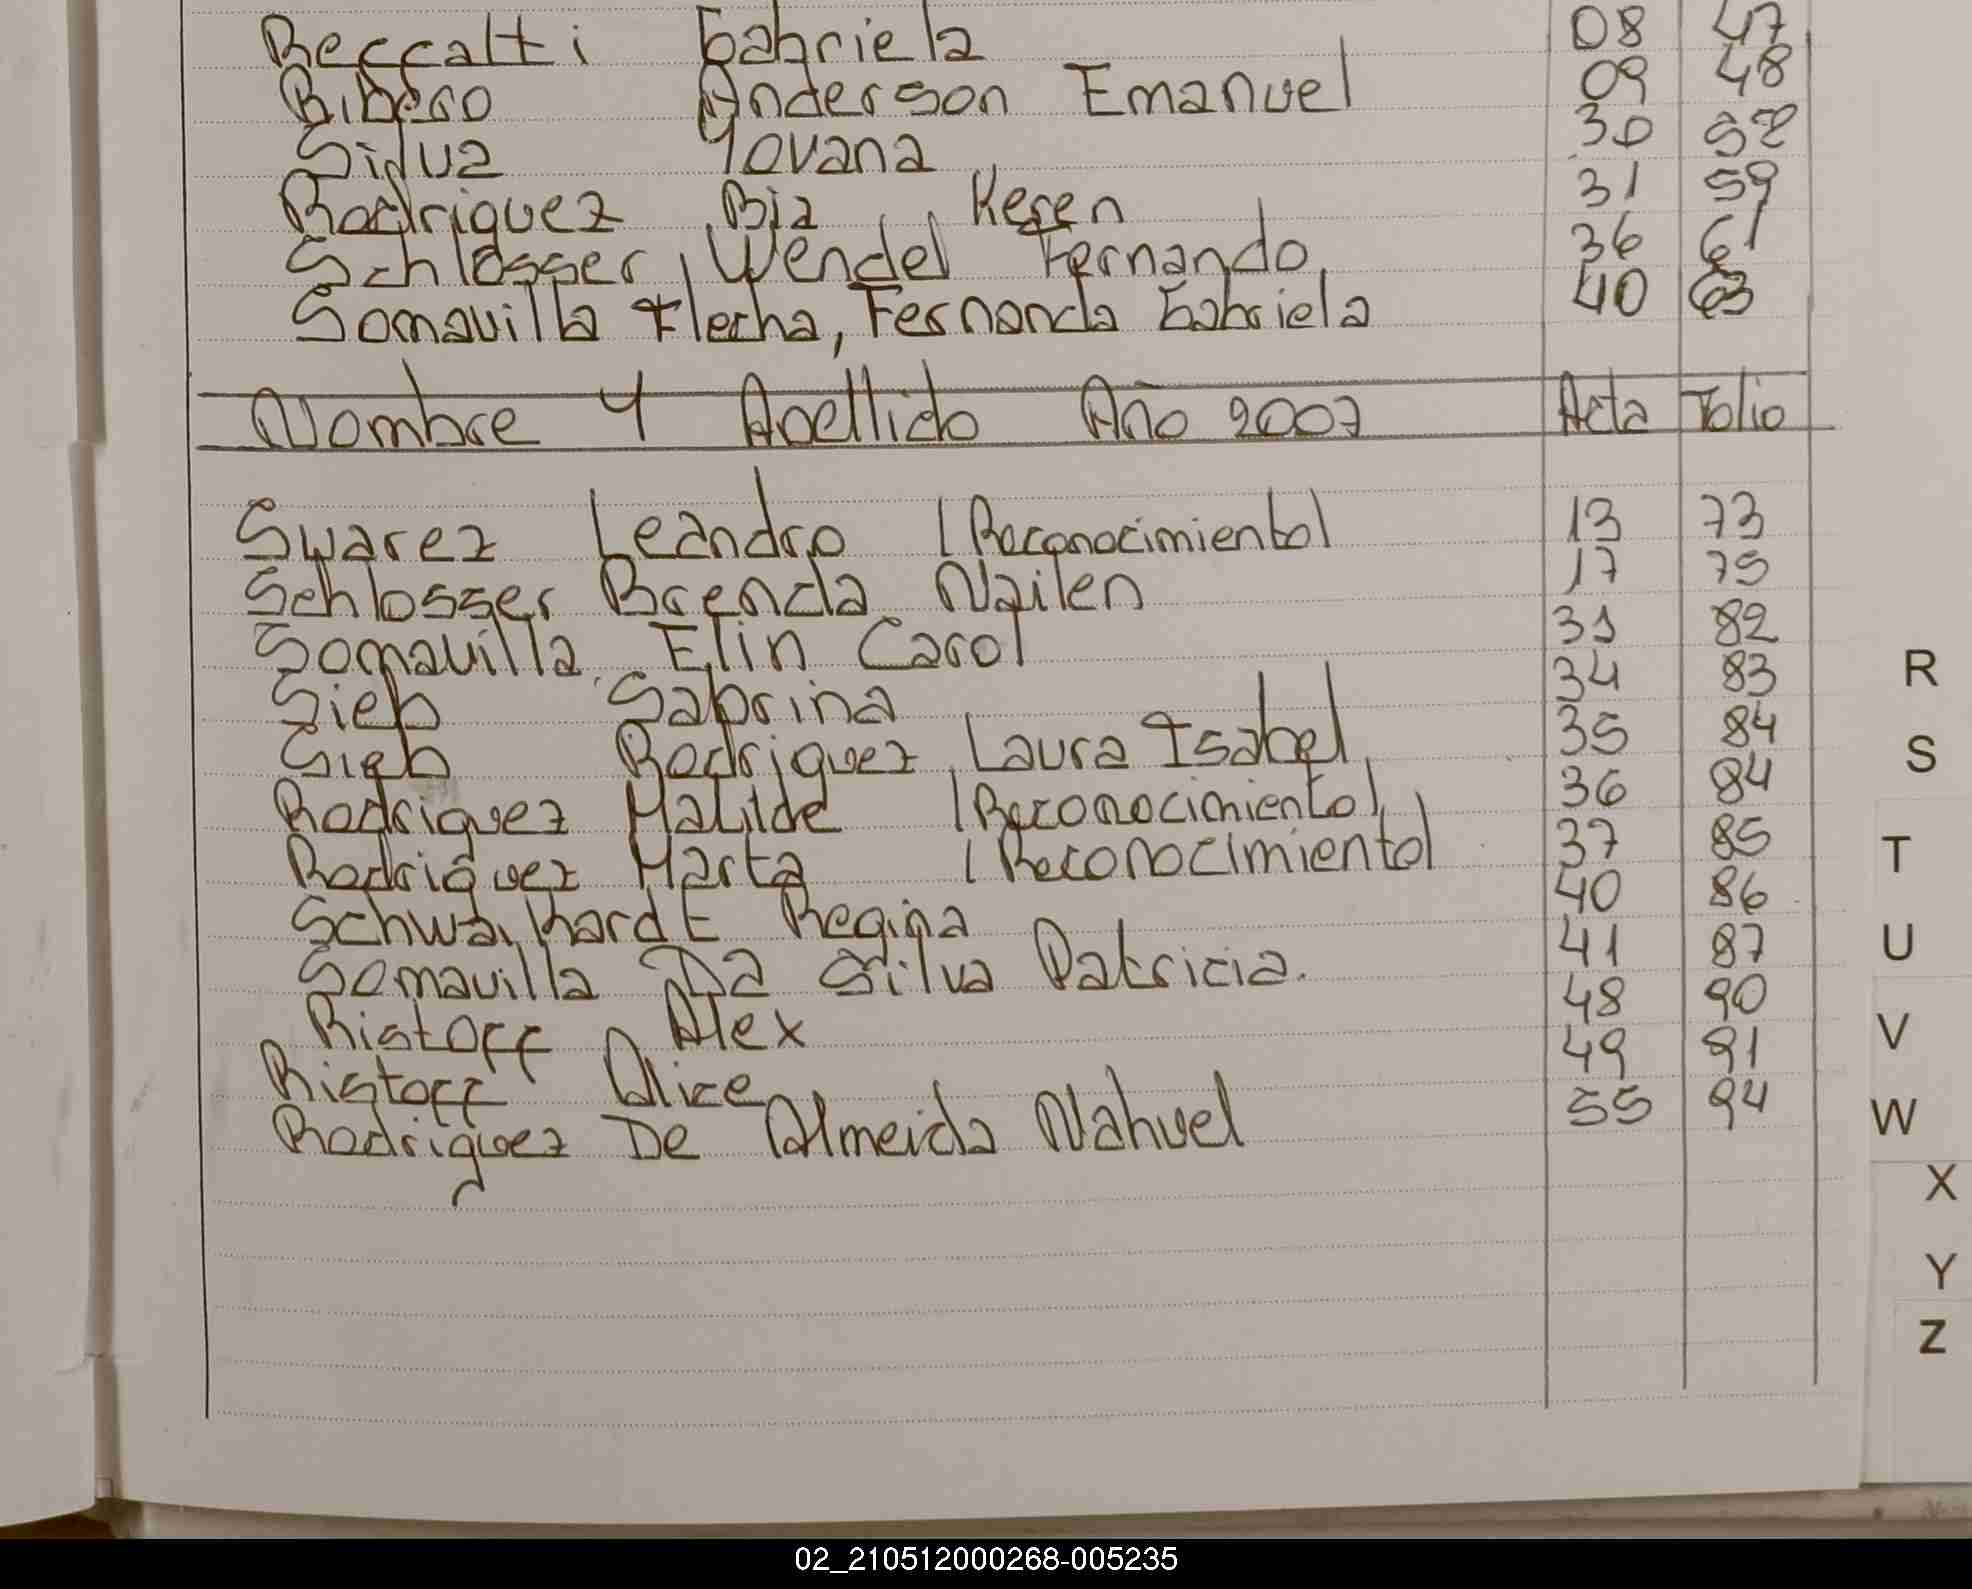 Reccalti Gabriela 08 47
Ribero Anderson Emanuel 09 48
Silva Yovana 30 58
Rodriguez Bia Keren 31 59
Schlosser, Wendel Fernando 36 61
Somavilla Flecha, Fernanda Gabriela 40 63
Nombre Y Apellido Año 2007 Acta Folio
Swarez Leandro (Reconocimiento) 13 73
Schlosser Brenda Nailen 17 75
Somavilla Elin Carol 31 82
Sieb Sabrina 34 83
Sieb Rodriguez, Laura Isabel 35 84
Rodriguez Matilde (Reconocimiento) 36 84
Rodriguez Marta (Reconocimiento) 37 85
Schwaikardt Regina 40 86
Somavilla Da Silva Patricia. 41 87
Ristoff Alex 48 90
Ristoff Alice 49 91
Rodriguez De Almeida Nahuel 55 94
R
S
T
U
V
W
X
Y
Z
02_210512000268-005235